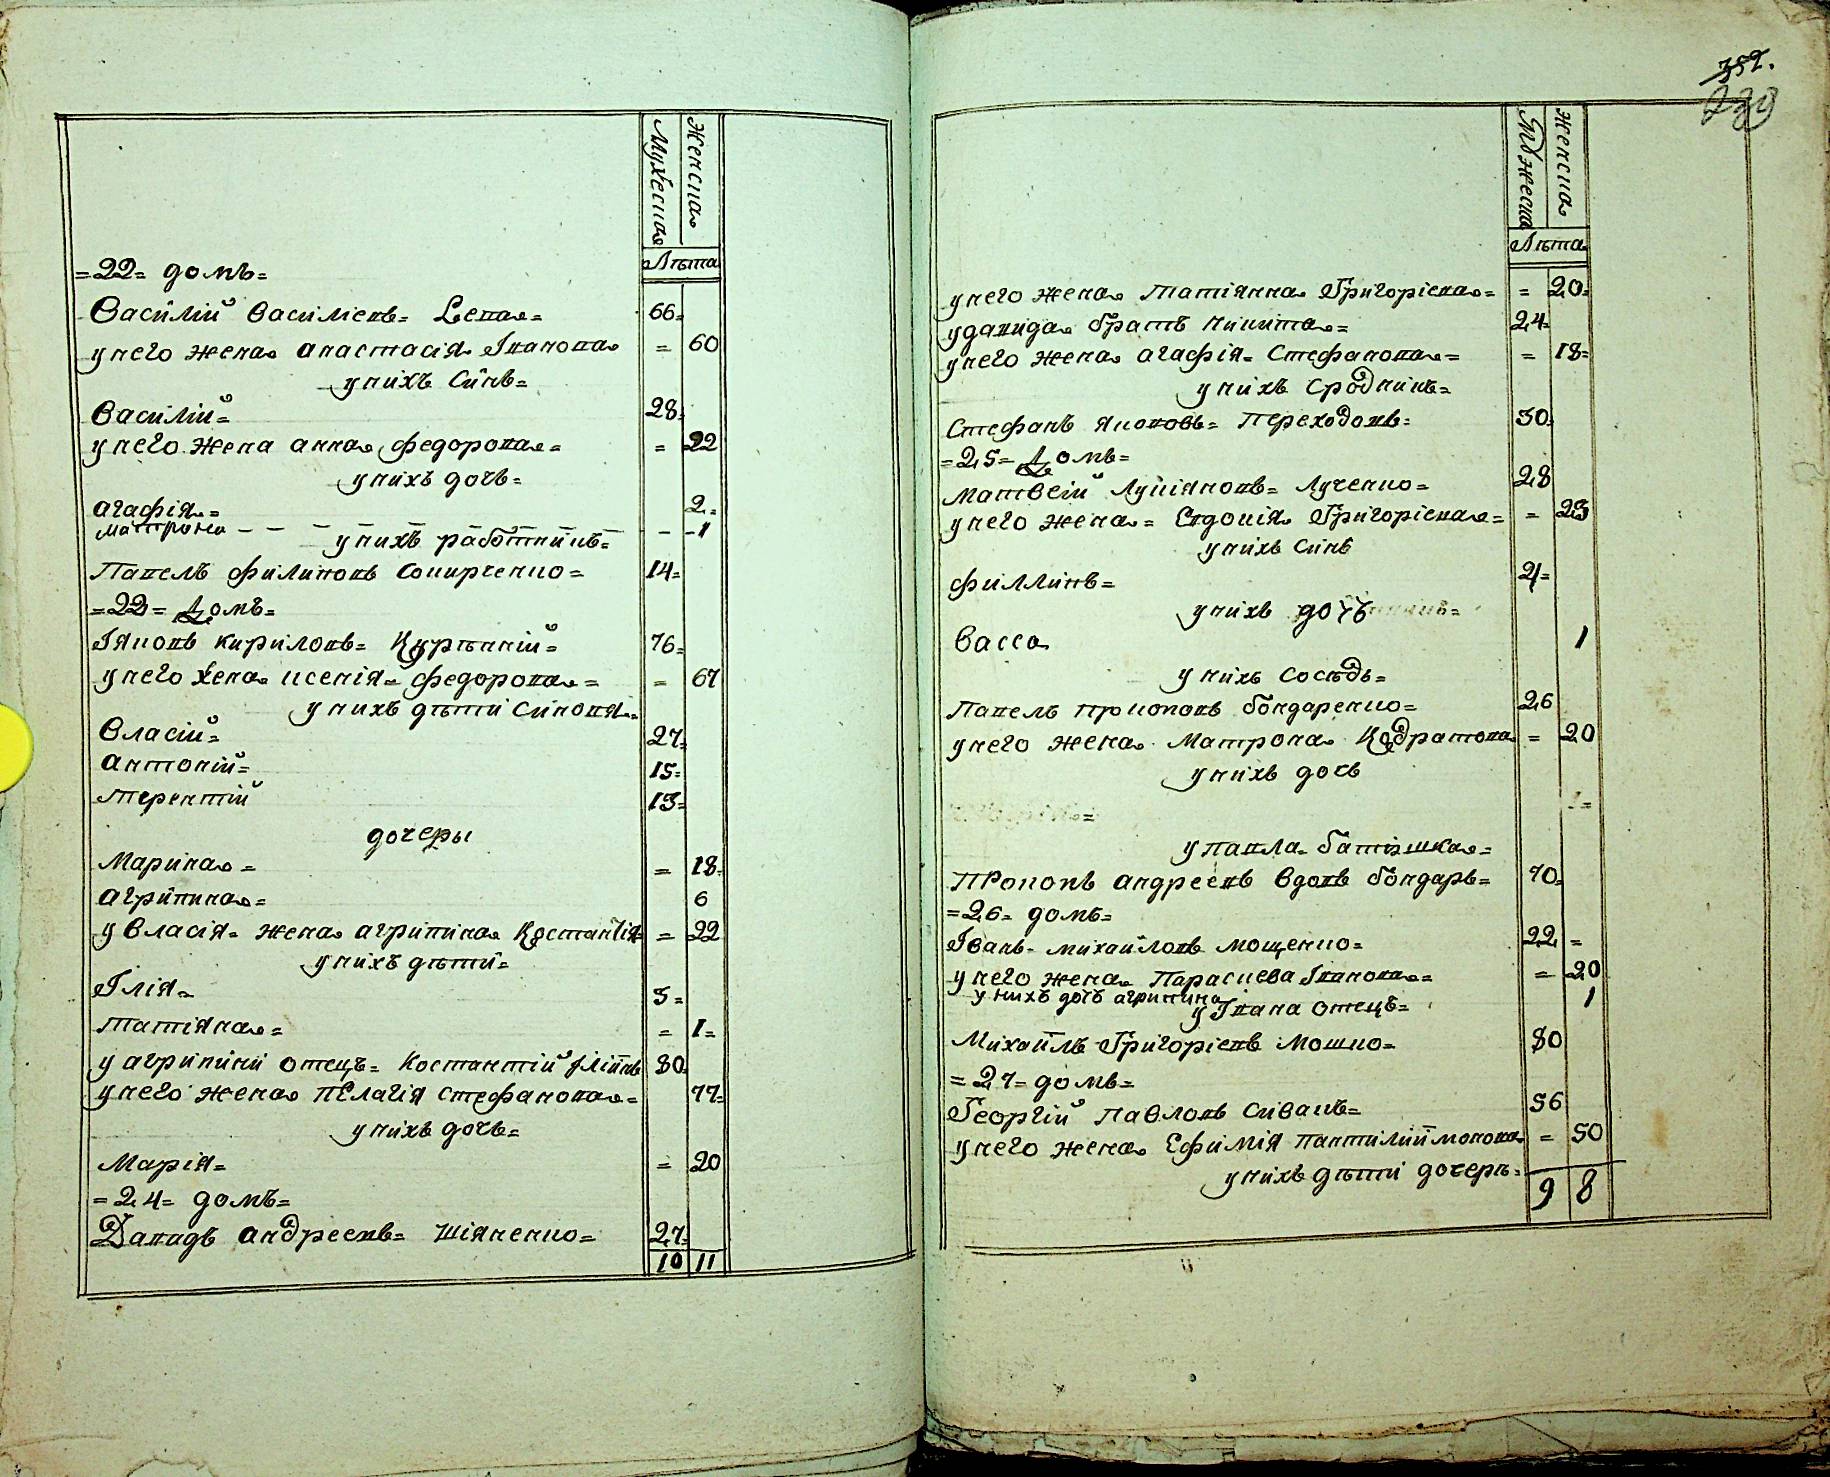 Мужеска
Женска
Лѣта
=22= домъ=
Василій Василіевъ= Сепа= 66=
у него жена анастасія Іванова = 60
у нихъ синъ=
Василій= 28=
у него жена анна федорова= = 22
у нихъ дочь=
агафія= 2=
матрона - - - - -1
у нихъ работникъ=
Павелъ филиповъ Сокирченко= 14=
=22= Домъ=
Іяковъ Кириловъ= 76=
у него жена ксенія= федорова= = 67
у нихъ дѣти Синовя=
Власій= 27=
антоній= 15=
терентій 13=
дочеры
Марина= = 18=
агрипина= 6
у Власія= жена агрипина Костантія = 22
у нихъ дѣти=
Ілія= 3=
татіяна= = 1=
у агрипини отецъ= Костантій Іліинъ 80=
у него жена пЕлагія стефанова= 77=
у нихъ дочь=
Марія= = 20
=24= домъ=
Давидъ андреевъ= Шіяненко= 27=
10 11
352.
239
Мужеска
Женска
Лѣта
у него жена татіянна Григоріева= = 20=
у давида братъ никита= 24=
у него жена агафія= Стефанова= = 18=
у нихъ сродникъ=
Стефанъ якововъ= Переходовъ= 30=
=25= Домъ=
матвеій Лукіяновъ= Лученко= 28
у него жена= Евдокія Григоріева= = 23
у нихъ синъ
филлипъ= 4=
у нихъ дочъ
Васса 1
у нихъ сосѣдъ=
Павелъ прокоповъ бондаренко= 26
у него жена Матрона Кодратова = 20
у нихъ дочь
1=
у павла батюшка=
Прокопъ андреевъ вдовъ бондаръ= 70=
=26= домъ=
Іванъ михайловъ мощенко= 22 =
у него жена Парасцева Іванова= = 20
у нихъ дочъ агрипина 1
у Івана отецъ=
Михаилъ Григоріевъ Мошко= 80
=27= домъ=
Георгій Павловъ Сивакъ= 56
у него жена Ефимія пантилиимонова = 50
у нихъ дѣти дочеръ=
9 8